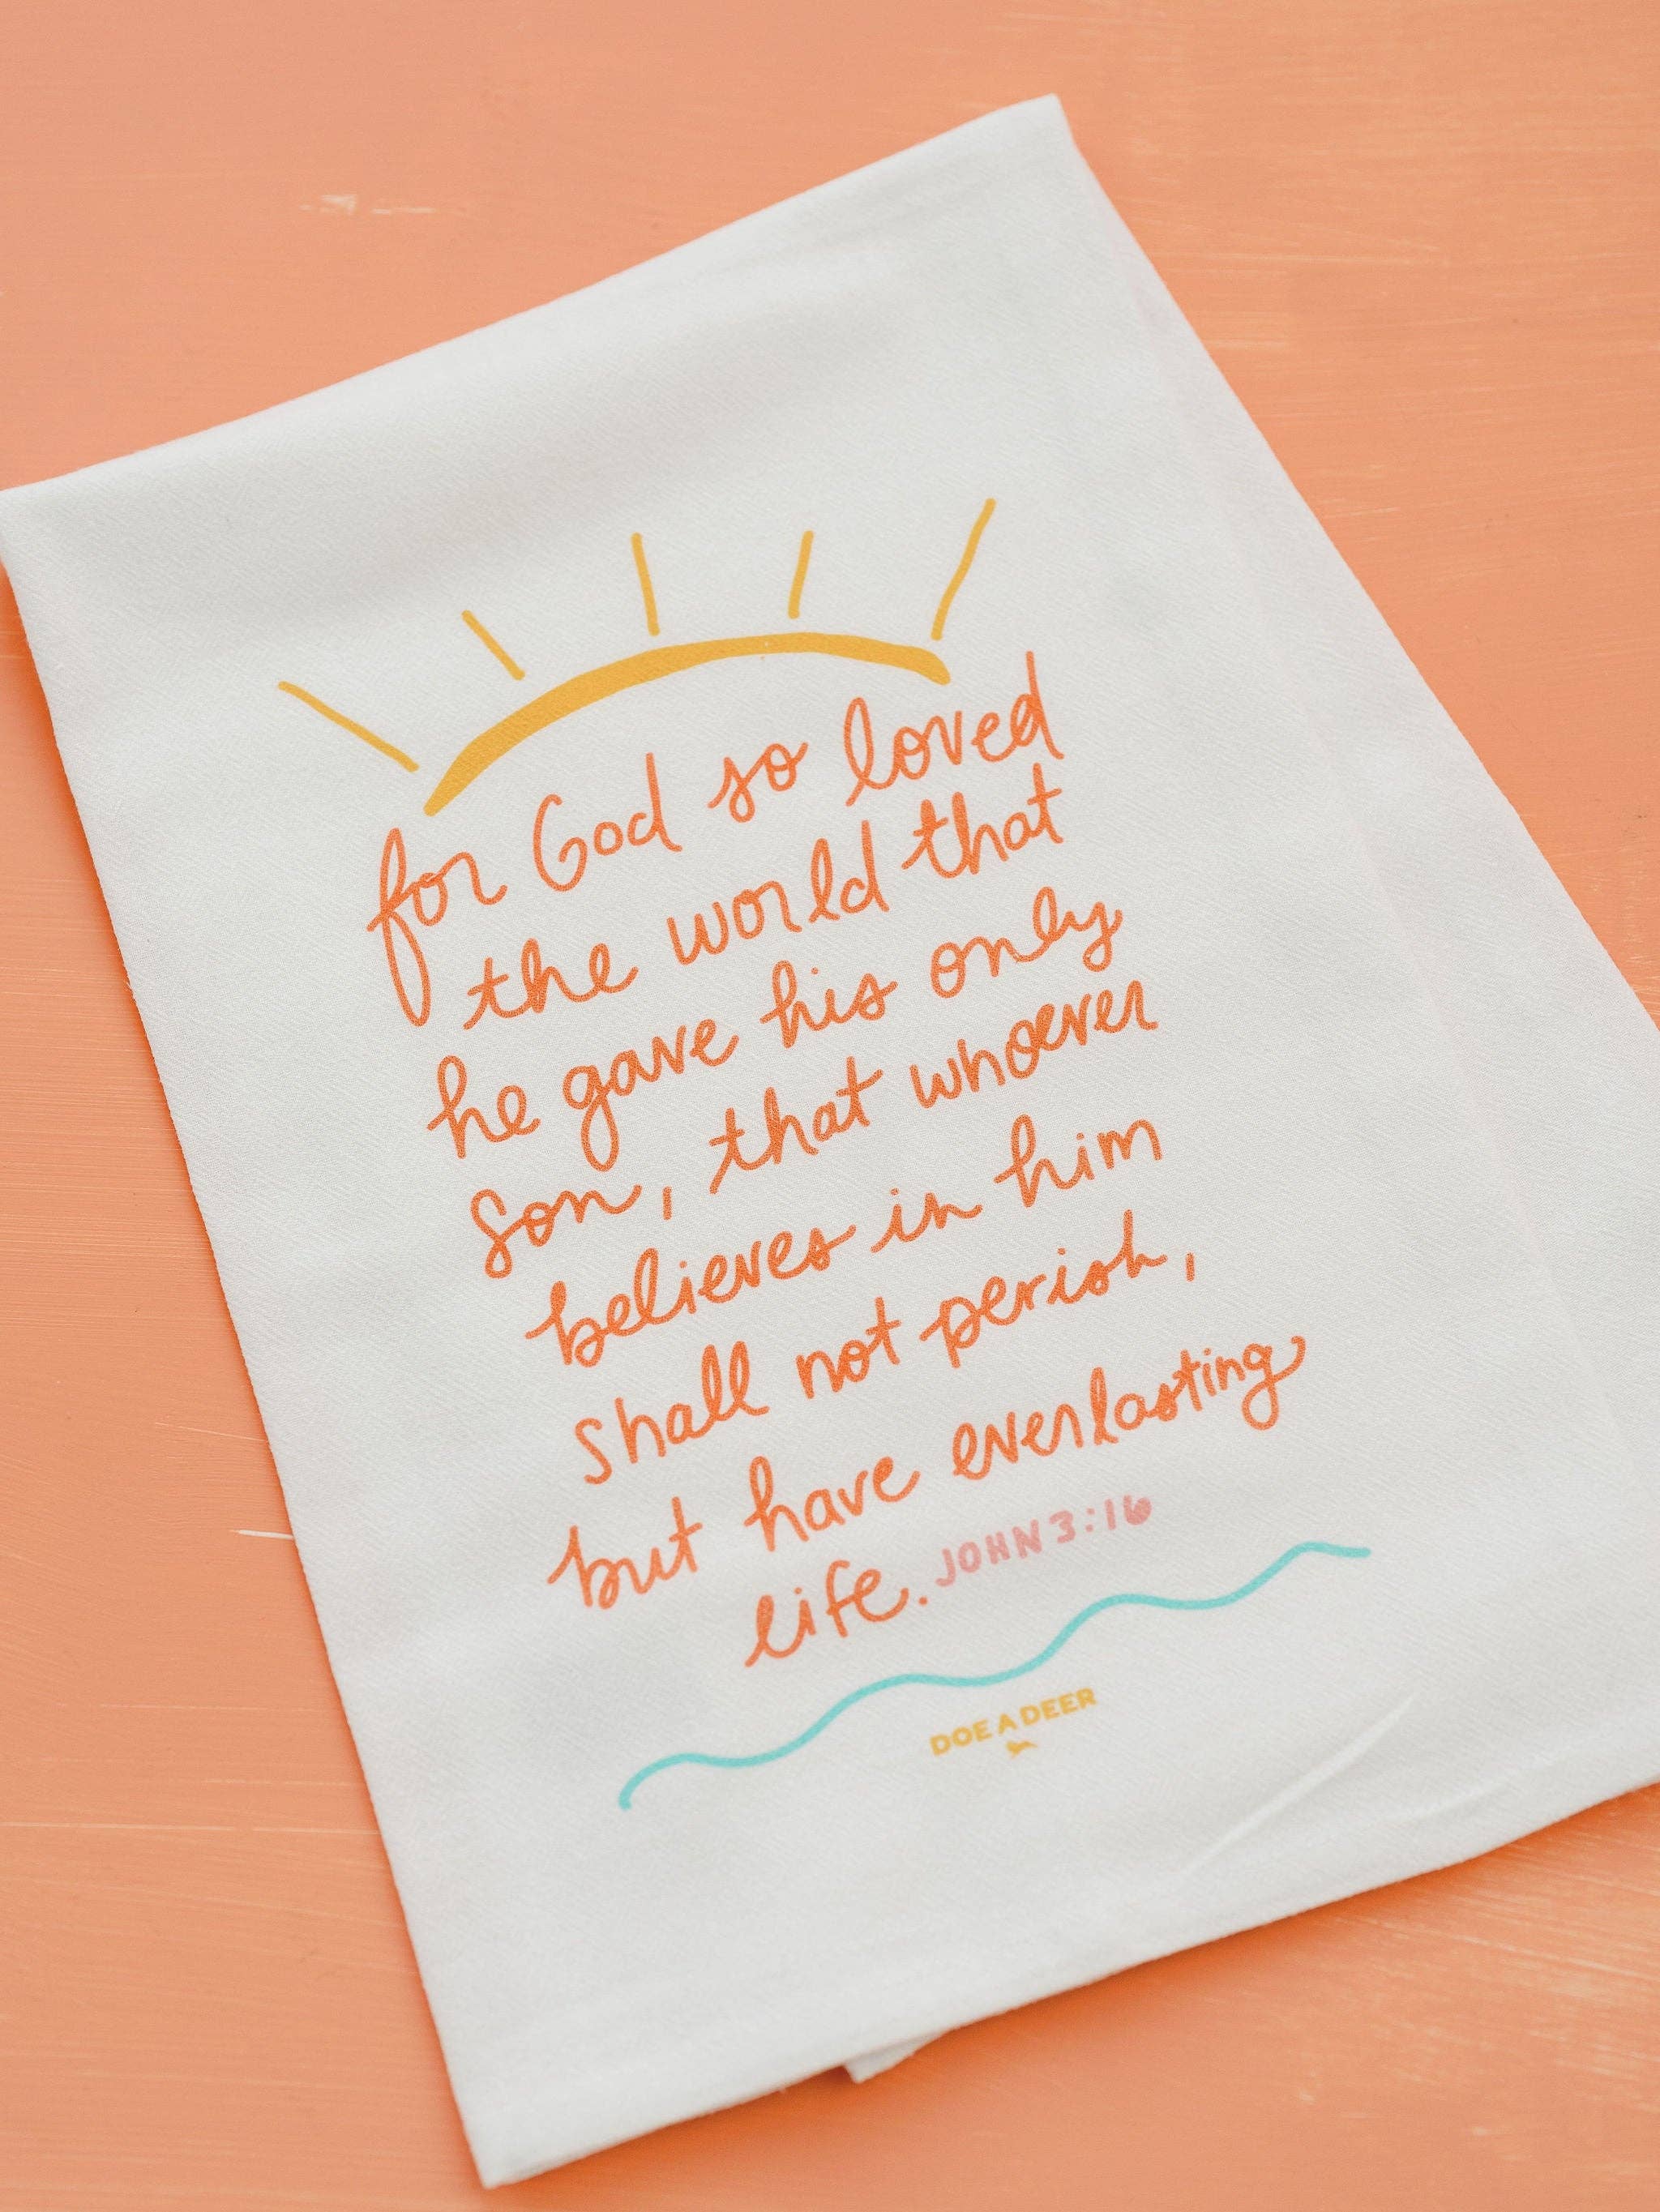 for God so loved
the world that
he gave his only
son, that whoever
believes in him
shall not perish,
but have everlasting
life. JOHN 3:16
DOE A DEER